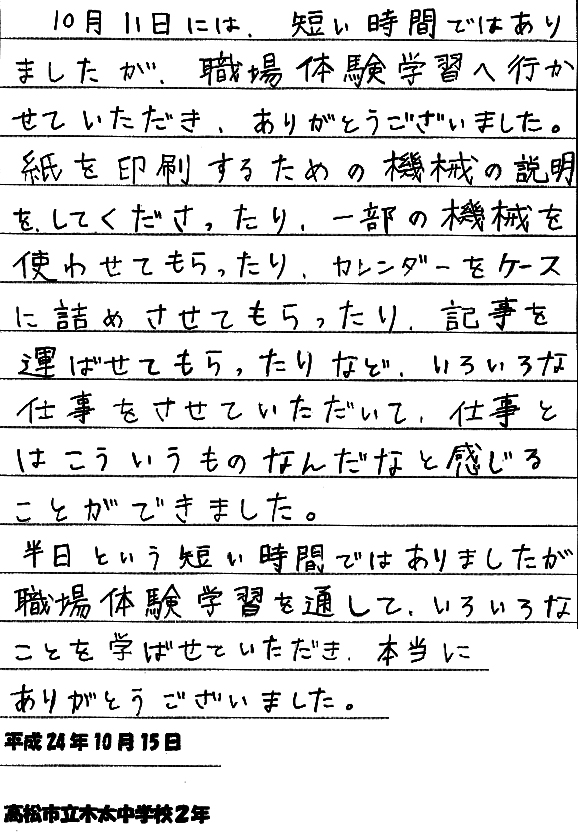 10月11日には、短い時間ではあり
ましたが、職場体験学習へ行か
せていただき、ありがとうございました。
紙を印刷するための機械の説明
を、してくださったり、一部の機械を
使わせてもらったり、カレンダーをケース
に詰めさせてもらったり、記事を
運ばせてもらったりなど、いろいろな
仕事をさせていただいて、仕事と
はこういうものなんだなと感じる
ことができました。
半日という短い時間ではありましたが
職場体験学習を通して、いろいろな
ことを学ばせていただき、本当に
ありがとうございました。
平成24年10月15日
高松市立木太中学校2年